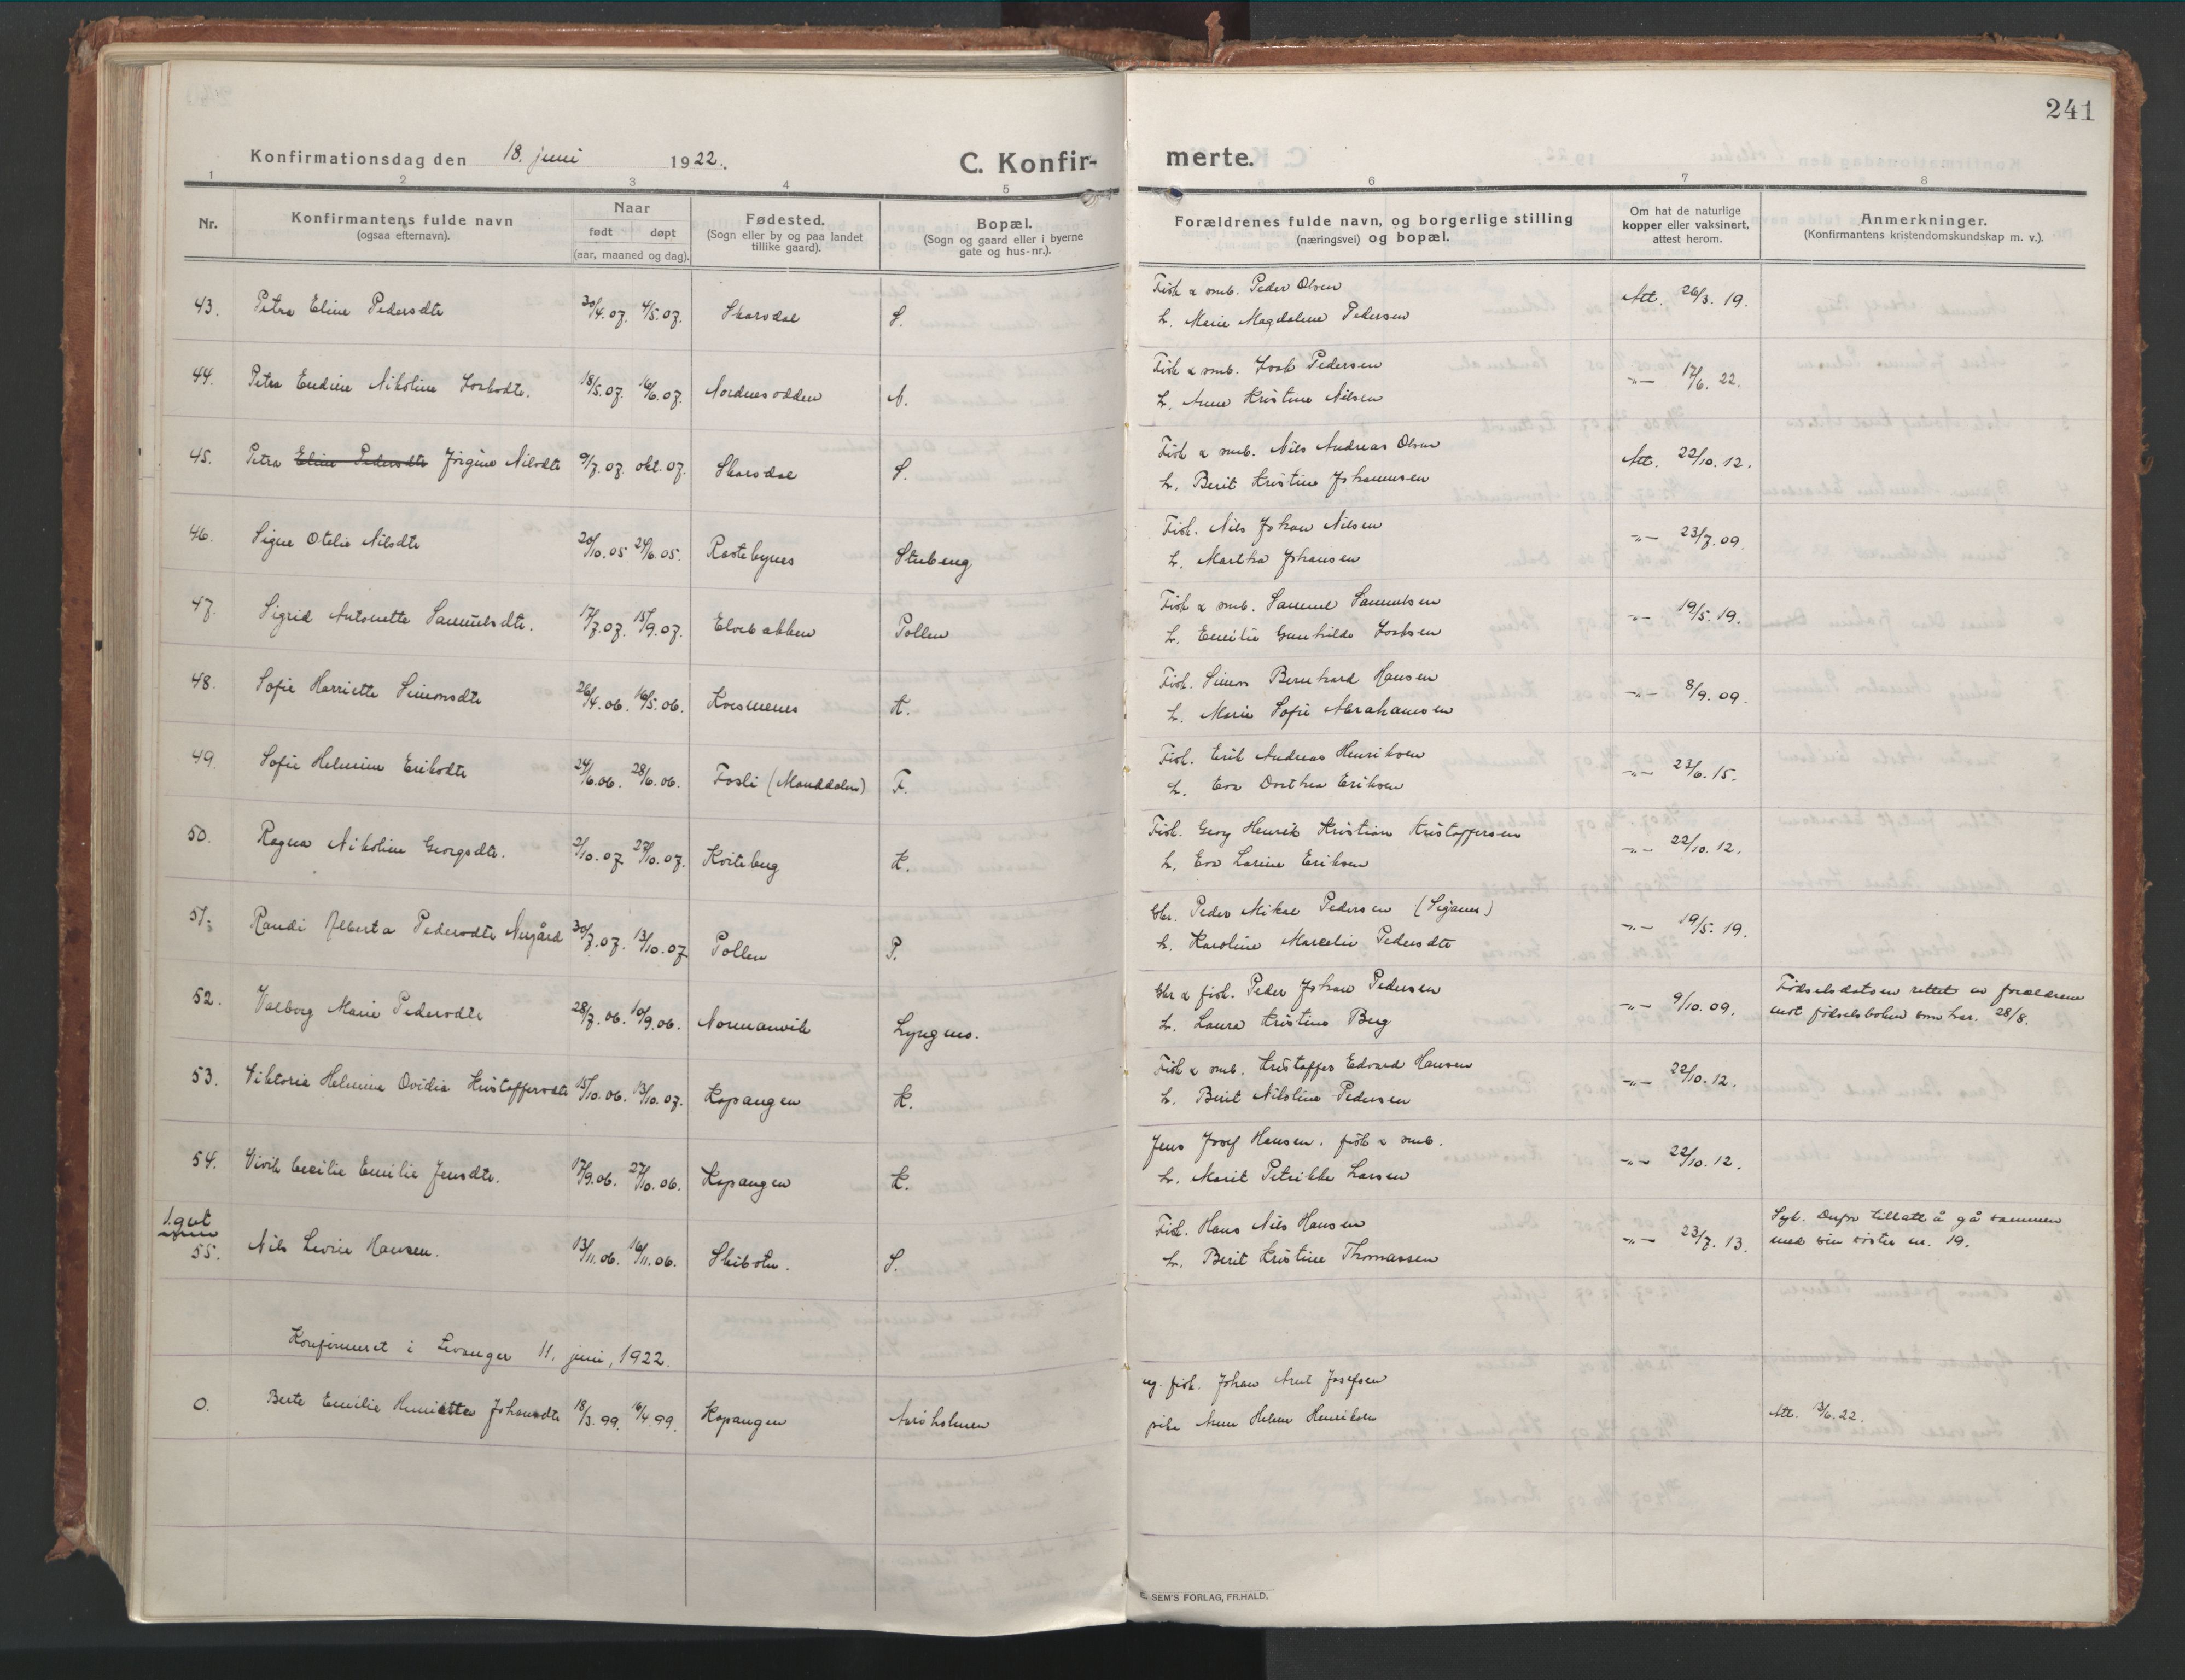 241
Konfirmationsdag den 18. juni 1922.
C. Konfirmerte.
1 2 3 4 5 6 7 8
Nr.
Konfirmantens fulde navn
(ogsaa efternavn).
Naar
født døpt
(aar, maaned og dag).
Fødested.
(Sogn eller by og paa landet
tillike gaard).
Bopæl.
(Sogn og gaard eller i byerne
gate og hus-nr.).
Forældrenes fulde navn, og borgerlige stilling
(næringsvei) og bopæl.
Om hat de naturlige
kopper eller vaksinert,
attest herom.
Anmerkninger.
(Konfirmantens kristendomskundskap m. v.).
43. Petra Eline Pedersdtr 30/4.07. 4/5.07. Skarsdal S. Fisk & smb. Peder Olsen Att. 26/3. 19.
h. Marie Magdalene Pedersen
44. Petra Endine Nikoline Isaksdtr. 18/5.07. 16/6.07. Nordnesodden N. Fisk & smb. Isak Pedersen -"- 17/6. 22.
h. Anne Kristine Nilsen
45. Petra Eline Pedersdtr Jörgine Nilsdtr 9/7.07. okt. 07. Skarsdal S. Fisk & smb. Nils Andreas Olsen Att. 22/10. 12.
h. Berit Kristine Johannesen
46. Signe Otelie Nilsdtr 20/10.05 24/6.05. Rastebynes Stubeng Fisk. Nils Johan Nilsen -"- 23/7. 09.
h. Martha Johansen
47. Sigrid Antonette Samuelsdtr. 17/7.07. 15/9.07. Elvebakken Pollen Fisk & smb. Samuel Samuelsen -"- 19/5. 19.
h. Emilie Gunhilde Isaksen
48. Sofie Harriette Simonsdtr 26/4.06. 16/5.06. Kvesmenes K. Fisk. Simon Bernhard Hansen -"- 8/9. 09.
h. Marie Sofie Abrahamsen
49. Sofie Helmine Eriksdtr 24/6.06. 28/6.06. Fosli (Manddalen) F. Fisk. Erik Andreas Henriksen -"- 23/6. 15.
h. Eva Dorthea Eriksen
50. Ragna Nikoline Georgsdtr. 2/10.07 27/10.07. Kviteberg K. Fisk. Georg Henrik Kristian Kristoffersen -"- 22/10. 12.
h. Eva Larine Eriksen
51. Randi Alberta Pedersdtr Nygård 30/7.07. 13/10.07 Pollen P. Gbr. Peder Mikal Pedersen -"- 19/5. 19.
h. Karoline Marcelie Pedersdtr
52. Valborg Marie Pedersdtr 28/7.06. 10/9.06. Normannvik Lyngens. Gbr & fisk. Peder Johan Pedersen -"- 9/10. 09. Födselsdatoen rettet av forældrene
h. Laura Kristine Berg mot födselsboken som har. 28/8.
53. Viktoria Helmine Ovidia Kristoffersdtr 15/10.06. 13/10.07. Kopangen K. Fisk & smb. Kristoffer Edvard Hansen -"- 22/10. 12.
h. Berit Nilsline Pedersen
54. Vivik Cecilie Emilie Jensdtr. 17/9.06. 27/10.06. Kopangen K. Jens Josef Hansen. fisk & smb. -"- 22/10. 12.
h. Marit Petrikke Larsen
1. gut
55. Nils Levin Hansen. 13/11.06. 16/11.06. Skibotn. S. Fisk. Hans Nils Hansen -"- 23/7. 13. Syk. Derfor tillatt å gå sammen
h. Berit Kristine Thomassen med sin söster nr. 19.
Konfirmeret i Levanger 11. juni, 1922.
0. Berte Emilie Henriette Johansdtr 18/3.99. 16/4.99. Kopangen Aaröholmen ug. fisk. Johan Arnt Josefsen
pike Anne Helene Henriksen Att. 13/6.22.
E. SEM'S FORLAG, FR.HALD.